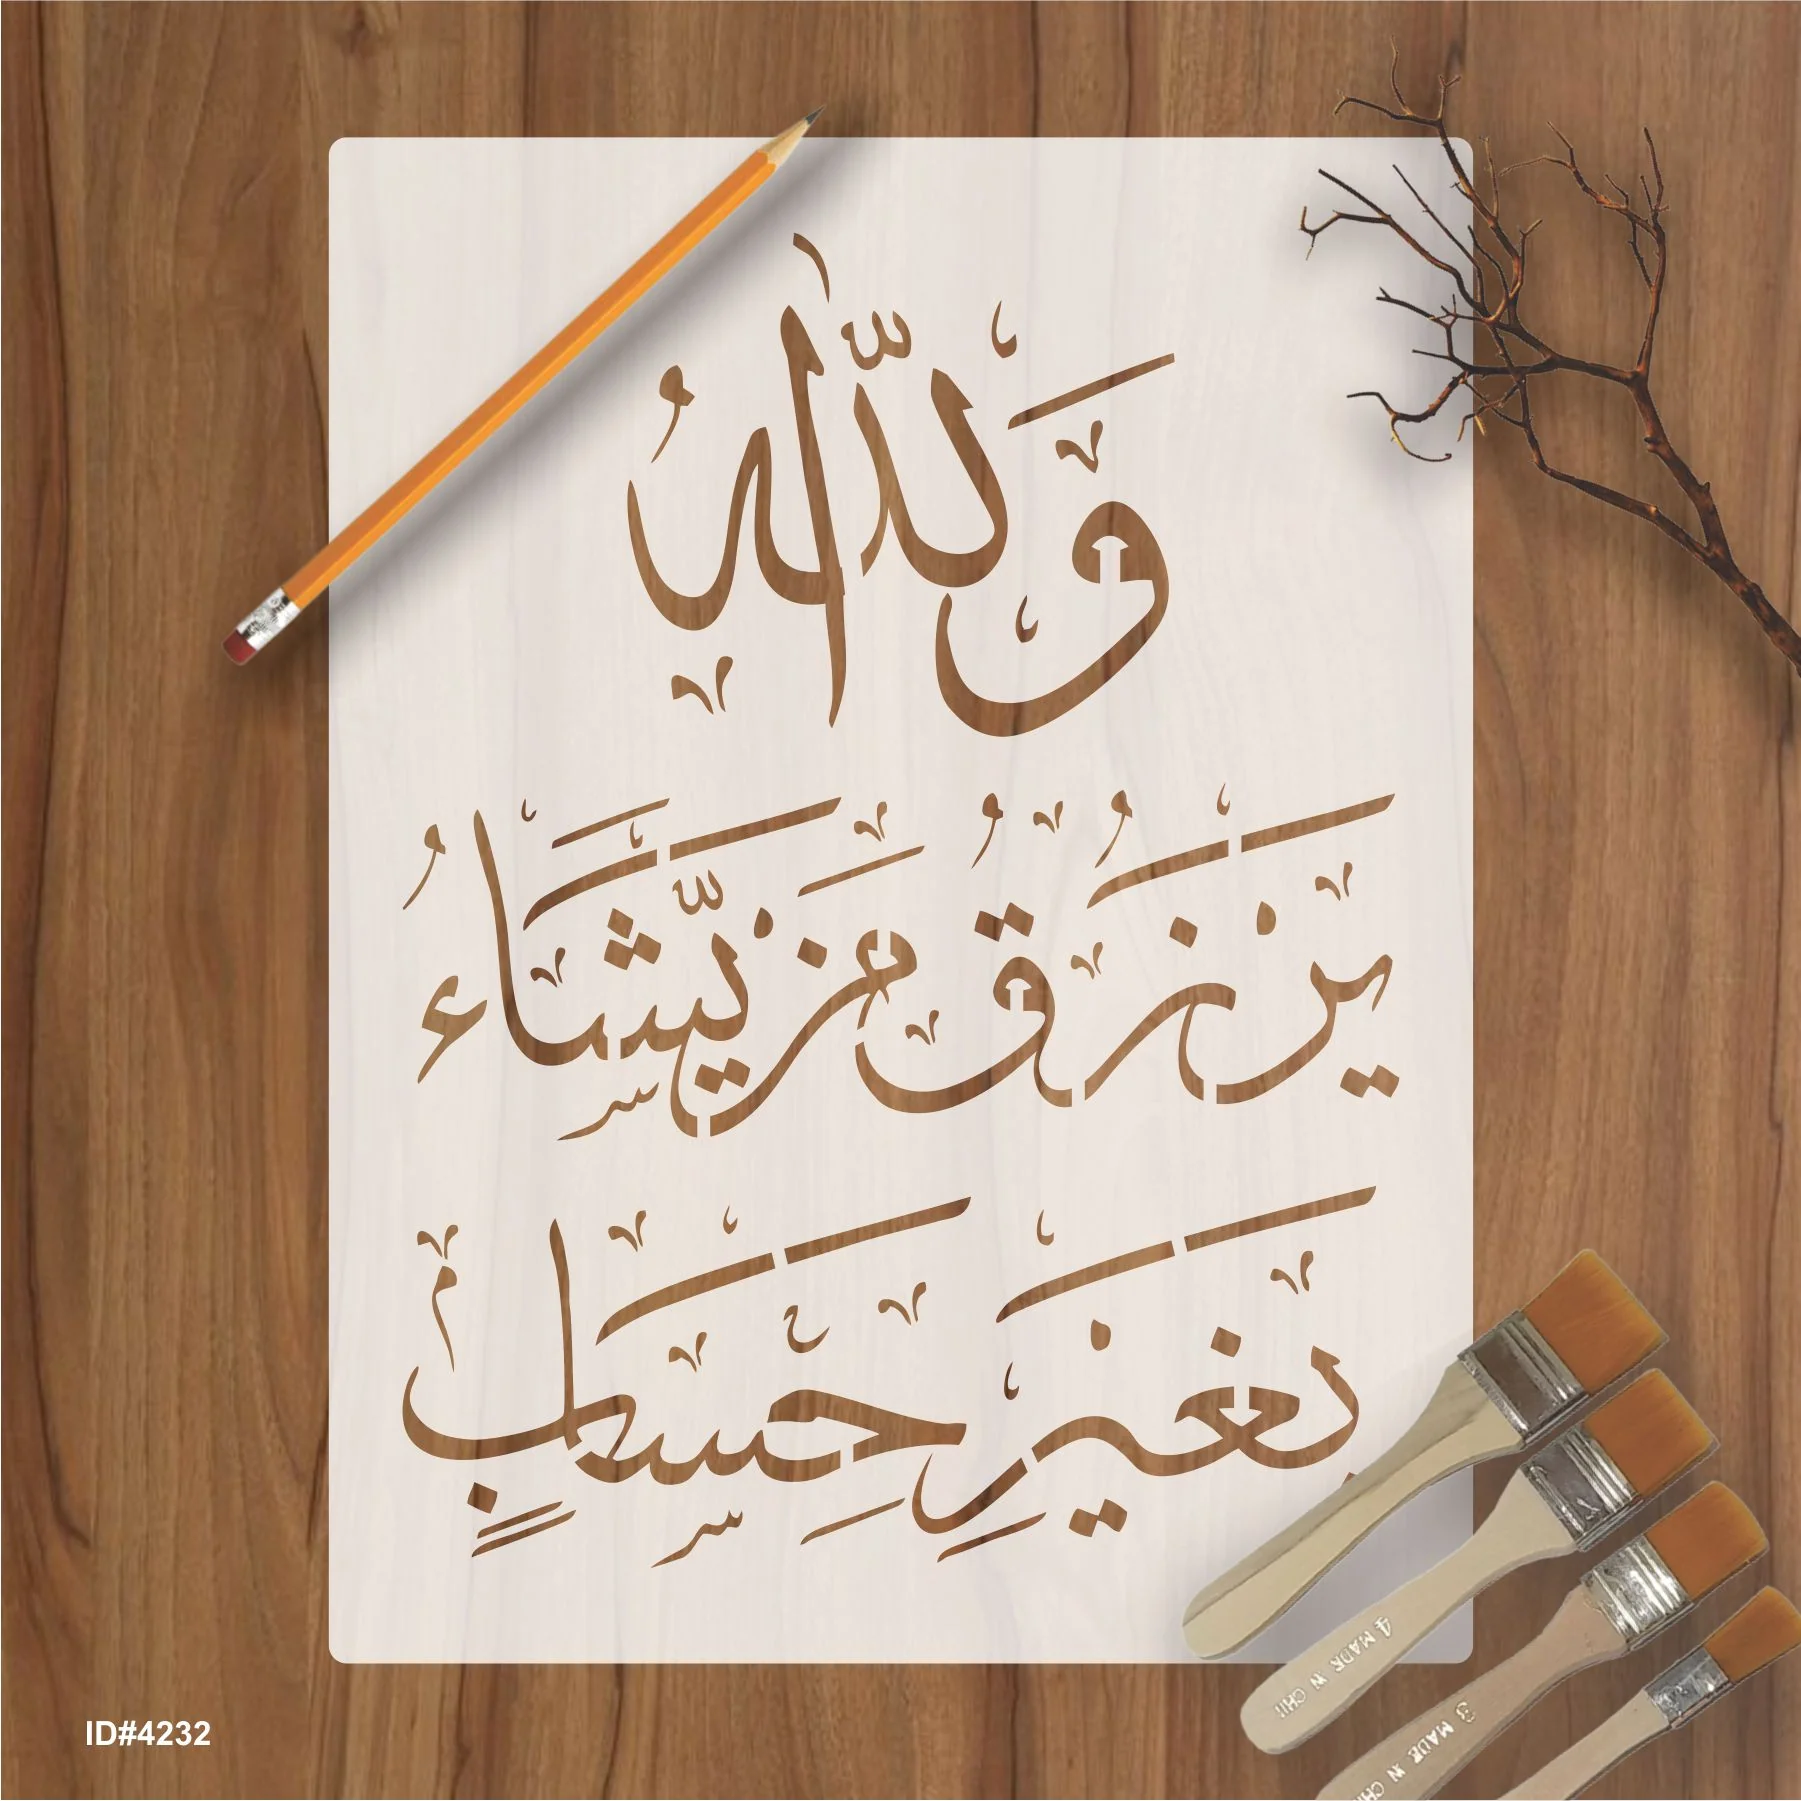 وَاللّٰهُ
يَرْزُقُ مَنْ يَّشَاءُ
بِغَيْرِ حِسَابٍ
4 MADE IN CHI
3 MADE IN CHI
ID#4232